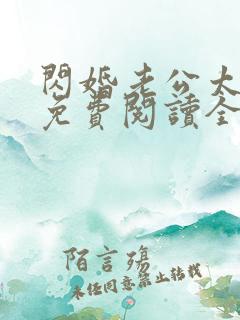 閃婚老公太
免費閱讀全
陌言殤
未經同意禁止轉載